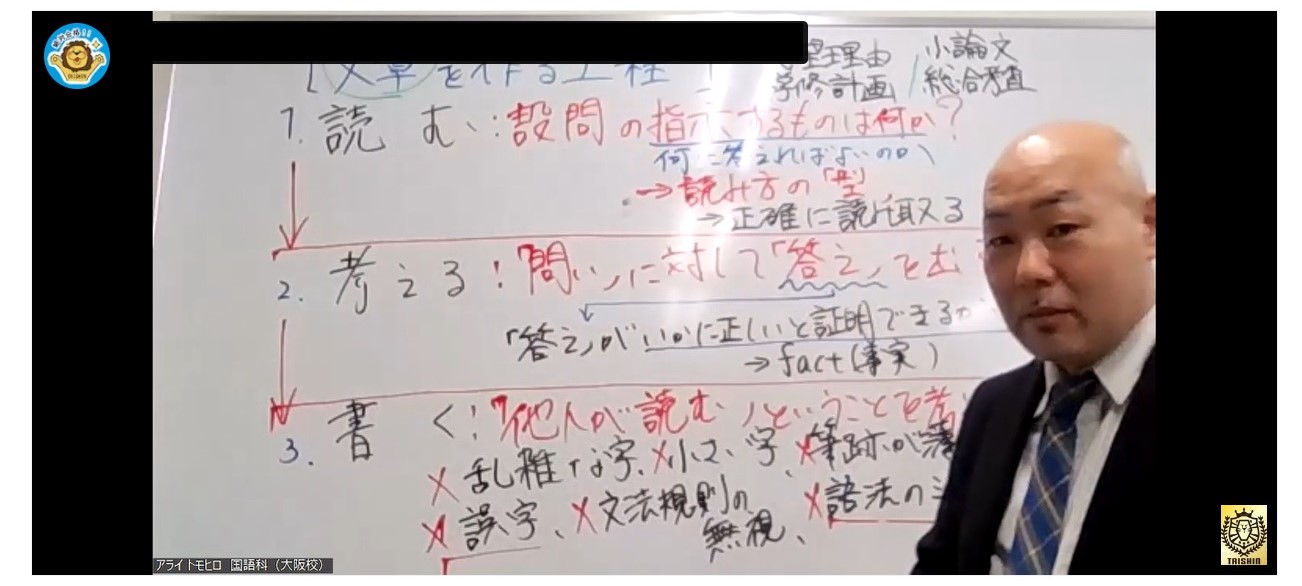 絶対合格!!
TAISHIN
「文章を作る工程」
望理由 / 小論文
学修計画 総合考査
1. 読む：設問の指示するものは何か？
何に答えればよいのか
→読み方の「型」
→正確に読み取る
2. 考える：「問い」に対して「答え」を出
「答え」がいかに正しいと証明できるか
→fact(事実)
3. 書く：「他人が読む」ということを考
×乱雑な字、×小さい字、×筆跡が薄
×誤字、×文法規則の無視、×語法の
アライトモヒロ 国語科（大阪校）
TAISHIN